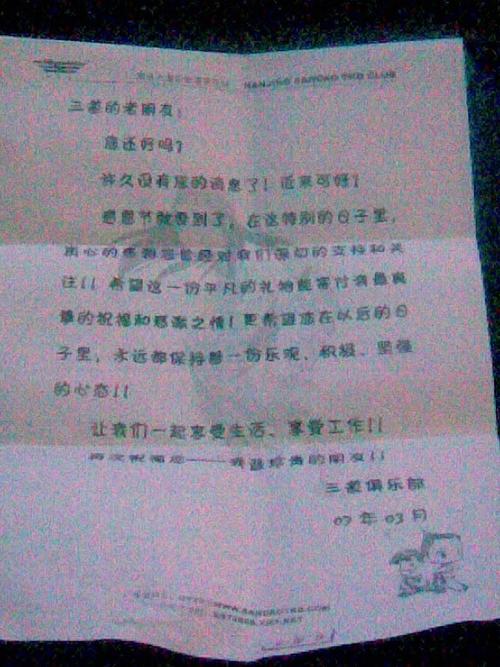 NANJING TKD CLUB
的老朋友：
您还好吗？
许久没有您的消息了！近来可好？
感恩节就要到了，在这特别的日子里，
衷心的感谢您曾经对我们深切的支持和关
注！！希望这一份平凡的礼物能寄付滴最真
挚的祝福和感激之情！更希望您在以后的日
子里，永远都保持着一份乐观、积极、坚强
的心态！！
让我们一起享受生活、享受工作！！
再次祝福您——我最珍贵的朋友！！
俱乐部
07 年 03 月